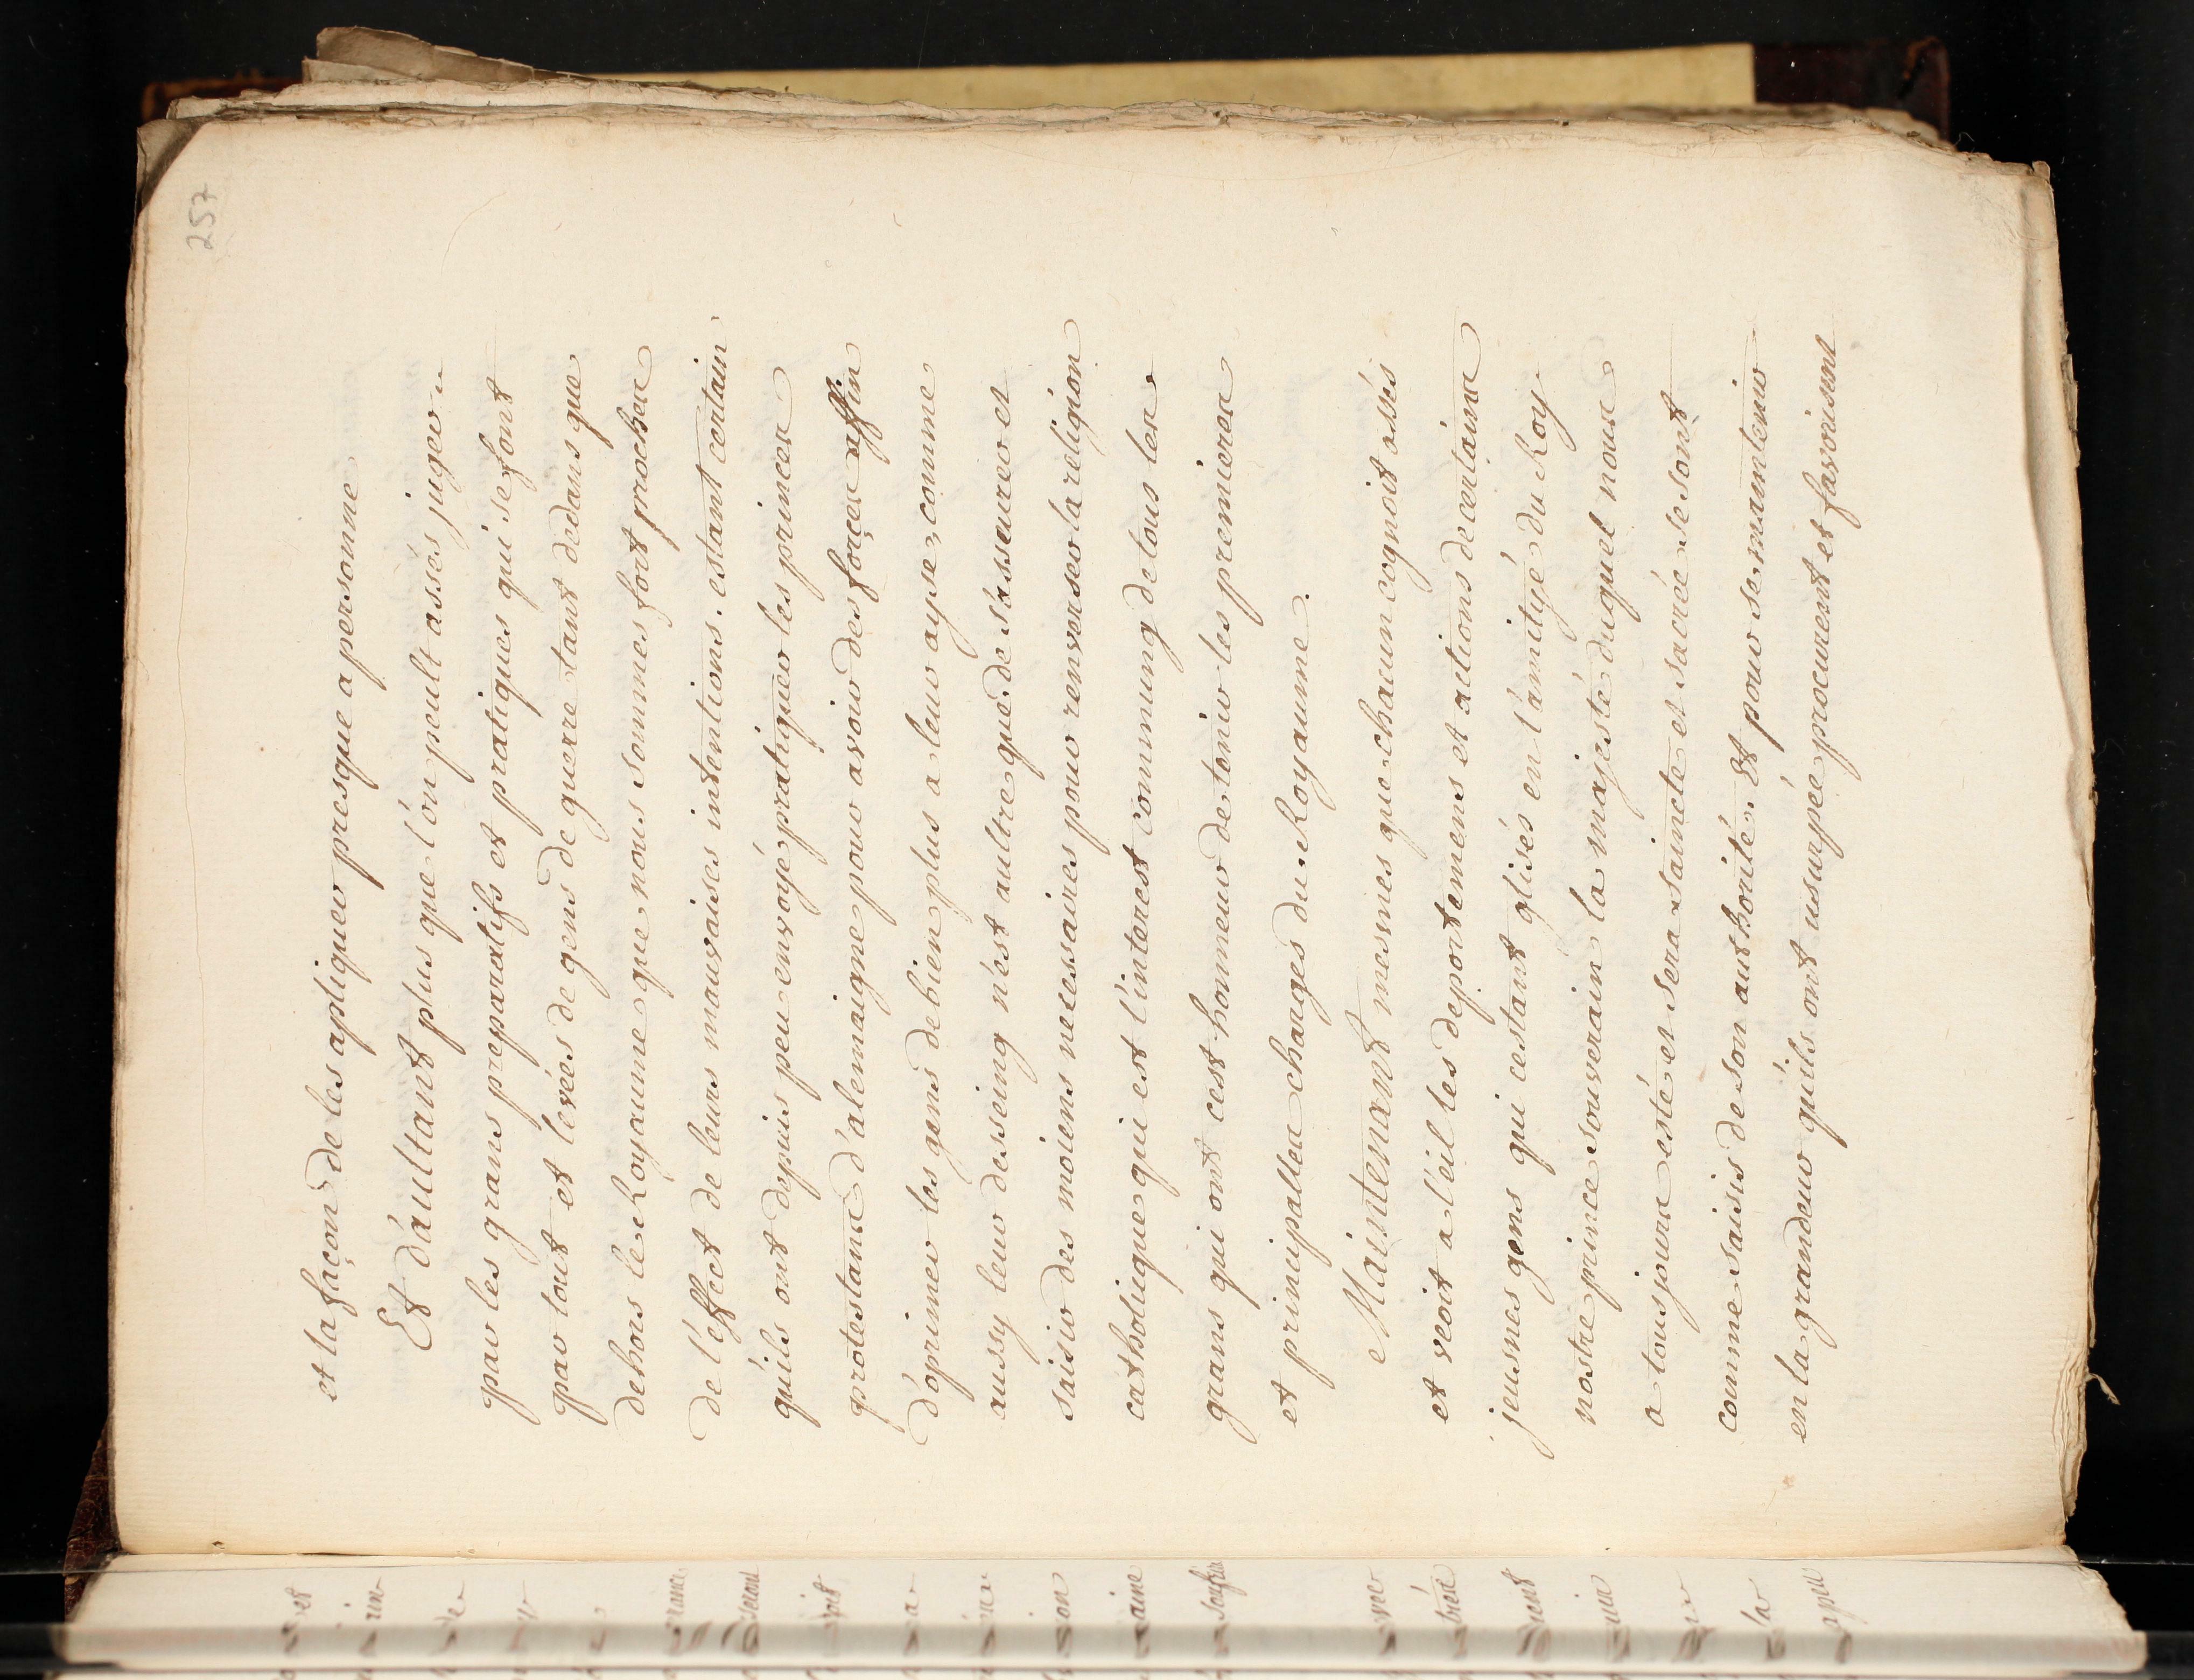 257
et la façon de les apliquer presque a personne
Et d'aultant plus que l'ôn peult assés juger
par les grans preparatifs et pratiques qui se font
par tout et levées de gens de guerre tant dedans que
dehors le Royaume que nous sommes fort proches
de l'éffect de leurs mauvaises intentions. estant certain
qu'ils ont depuis peu envoyé pratiquer les princes
protestans d'alemaigne pour avoir des forçes affin
d'oprimer les gens de bien plus a leur ayse, comme
aussy leur desseing n'est aultre que de s'asseurer et
saisir des moiens necessaires pour renverser la religion
catholique qui est l'interest commung de tous les
grans qui ont cest honneur de tenir les premieres
et principalles charges du Royaume.
Maintenant mesmes que chacun cognoit assés
et veoit a l'éil les deportemens et actions de certains
jeusnes gens qui cestant glisés en l'amityé du Roy
nostre prince souverain la majesté duquel nous
a tousjours esté et sera saincte et sacrée se sont
comme saisis de son authorité. Et pour se maintenir
en la grandeur qu'ils ont usurpée procurent et favorisent